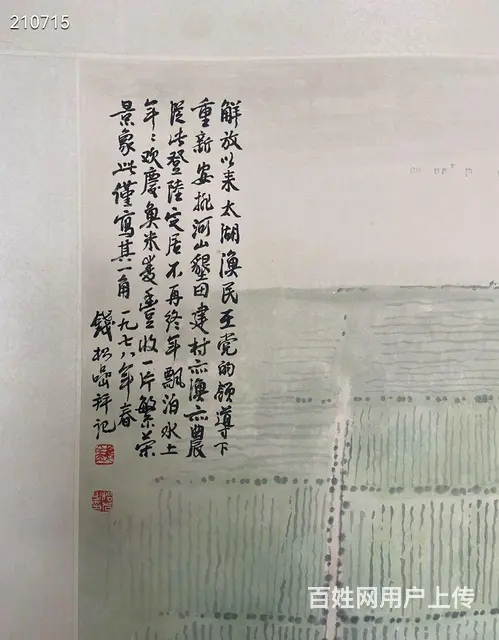 210715
解放以来太湖渔民在党的领导下
重新安排河山墾田建村亦渔亦農
从此登陸定居不再终年飘泊水上
年々欢慶魚米双豐收一片繁荣
景象此僅寫其一角一九七八年春
錢松嵒并记
百姓网用户上传